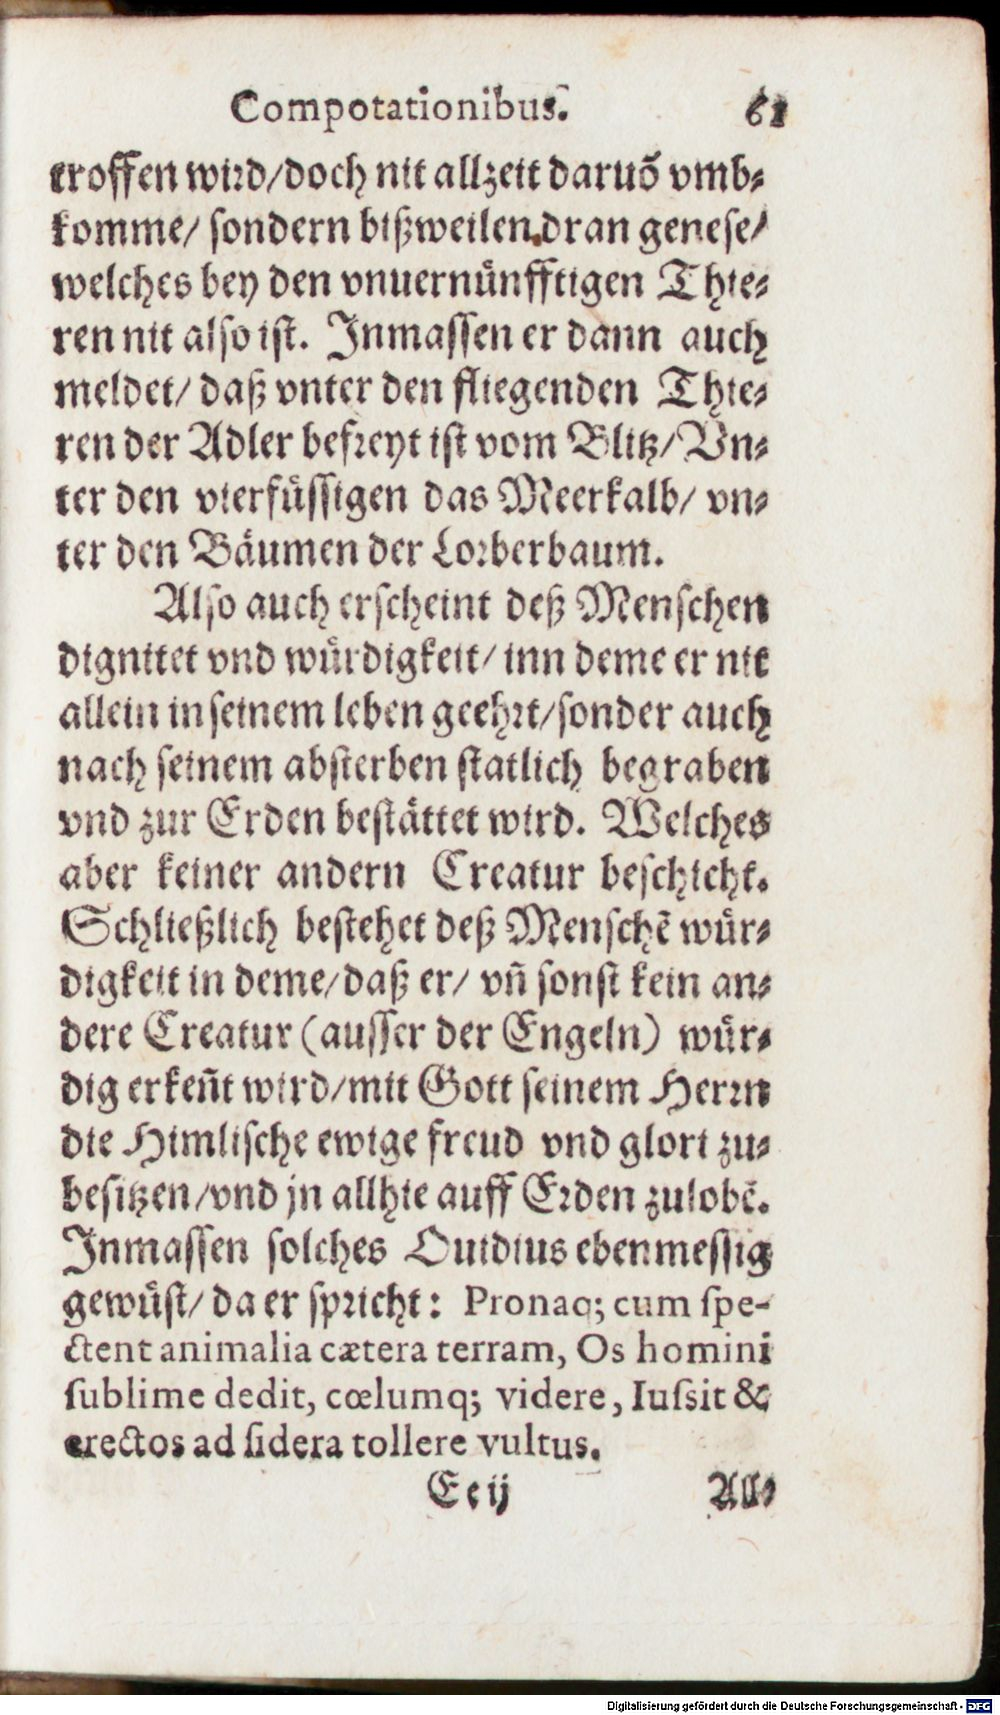 Compotationibus. 61
troffen wird/doch nit allzeit daruõ vmb⸗
komme/ sondern bißweilen dran genese/
welches bey den vnuernünfftigen Thie⸗
ren nit also ist. Inmassen er dann auch
meldet/ daß vnter den fliegenden Thie⸗
ren der Adler befreyt ist vom Blitz/Vn⸗
ter den vierfüssigen das Meerkalb/ vn⸗
ter den Bäumen der Lorberbaum.
Also auch erscheint deß Menschen
dignitet vnd würdigkeit/ inn deme er nit
allein in seinem leben geehrt/sonder auch
nach seinem absterben statlich begraben
vnd zur Erden bestättet wird. Welches
aber keiner andern Creatur beschicht.
Schließlich bestehet deß Menschẽ wür⸗
digkeit in deme/daß er/ vñ sonst kein an⸗
dere Creatur (ausser der Engeln) wür⸗
dig erkeñt wird/mit Gott seinem Herrn
die Himlische ewige freud vnd glori zu⸗
besitzen/vnd jn allhie auff Erden zulobẽ.
Inmassen solches Ouidius ebenmessig
gewüst/ da er spricht: Pronaq; cum spe-
ctent animalia cætera terram, Os homini
sublime dedit, cœlumq; videre, Iussit &
erectos ad sidera tollere vultus.
Ee ij All⸗
Digitalisierung gefördert durch die Deutsche Forschungsgemeinschaft - DFG